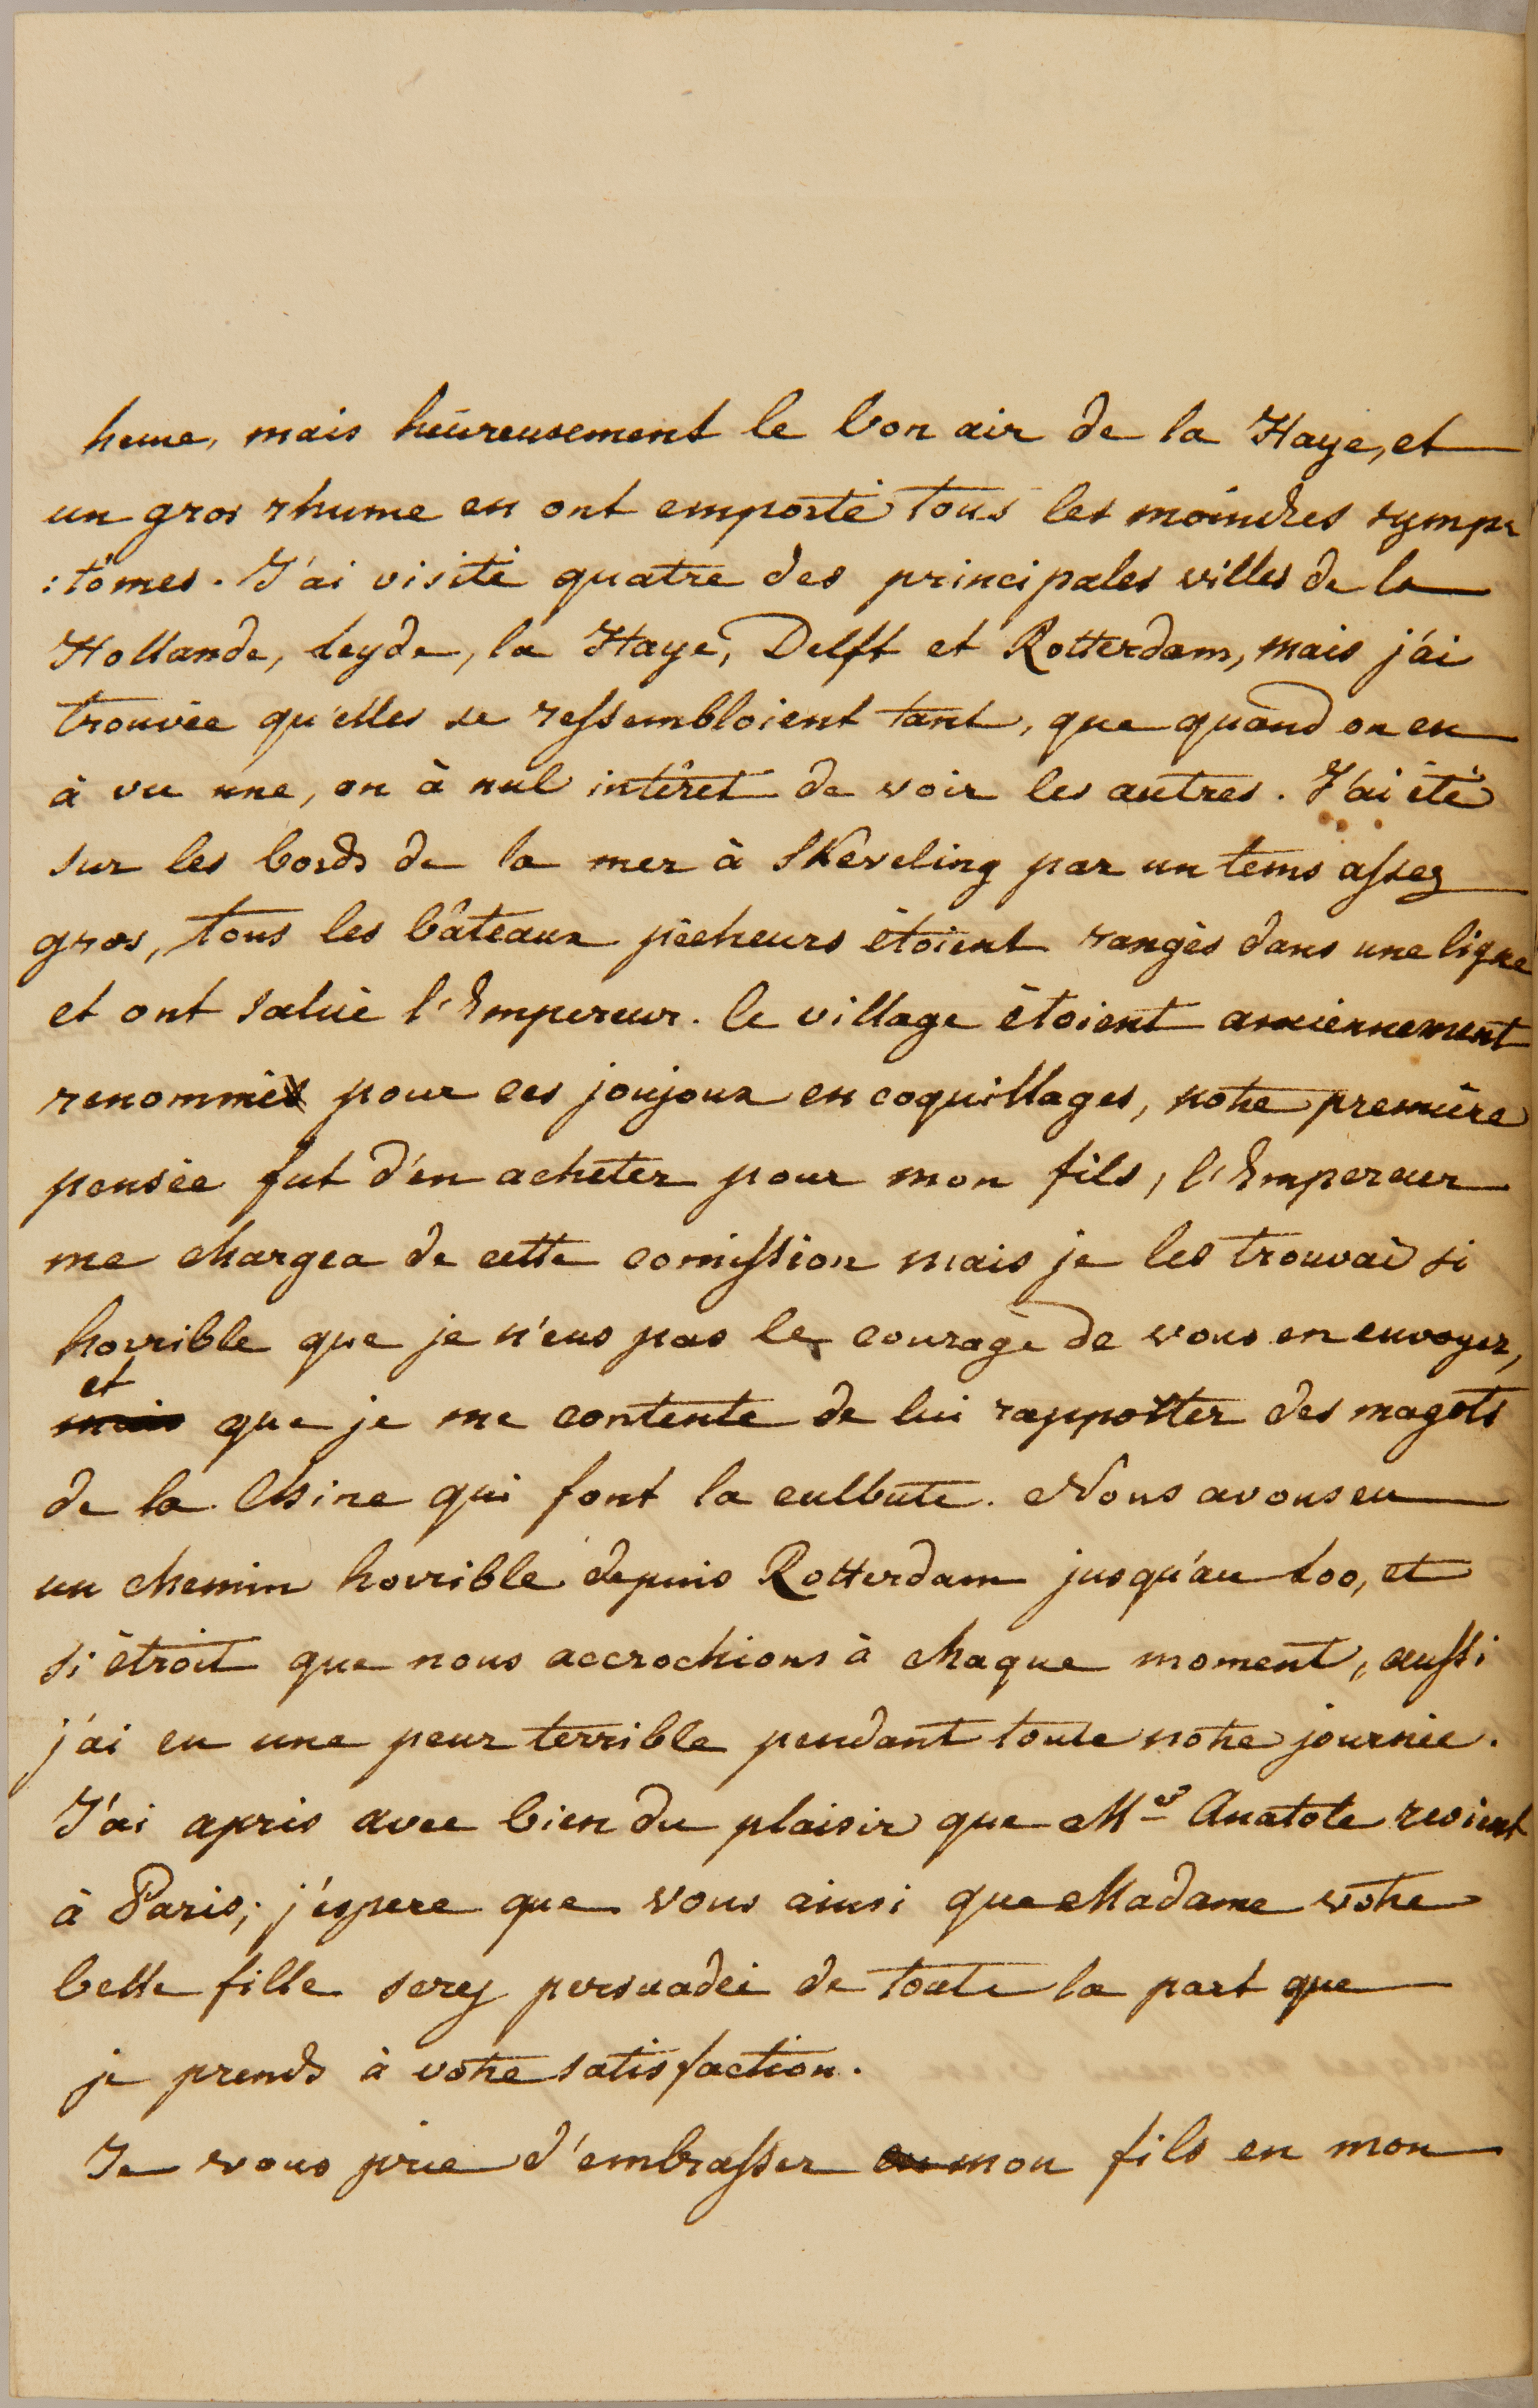 heure, mais héureusement le bon air de la Haye, et
un gros rhume en ont emporté tous les moindres symp
:tômes. J'ai visité quatre des principales villes de la
Hollande, Leyde, la Haye, Delft et Rotterdam, mais j'ai
trouvée qu'elles se ressembloient tant, que quand on en
à vu une, on à nul intêret de voir les autres. J'ai été
sur les bords de la mer à Skeveling par un tems assez
gros, tous les bâteaux pêcheurs étoient rangés dans une ligne
et ont salué l'Empereur. le village étoient anciennement
renommé pour ces joujoux en coquillages, notre première
pensée fut d'en acheter pour mon fils, l'Empereur
me chargea de cette comission mais je les trouvai si
horrible que je n'eus pas le courage de vous en envoyer,
et
mais que je me contente de lui rapporter des magots
de la Chine qui font la culbute. Nous avons eu
un chemin horrible depuis Rotterdam jusqu'au Loo, et
si étroit que nous accrochions à chaque moment, aussi
j'ai eu une peur terrible pendant toute notre journée.
J'ai apris avec bien du plaisir que Mr Anatole revient
à Paris; j'éspere que vous ainsi que Madame votre
belle fille serez persuadée de toute la part que
je prends à votre satisfaction.
Je vous prie d'embrasser mon fils en mon